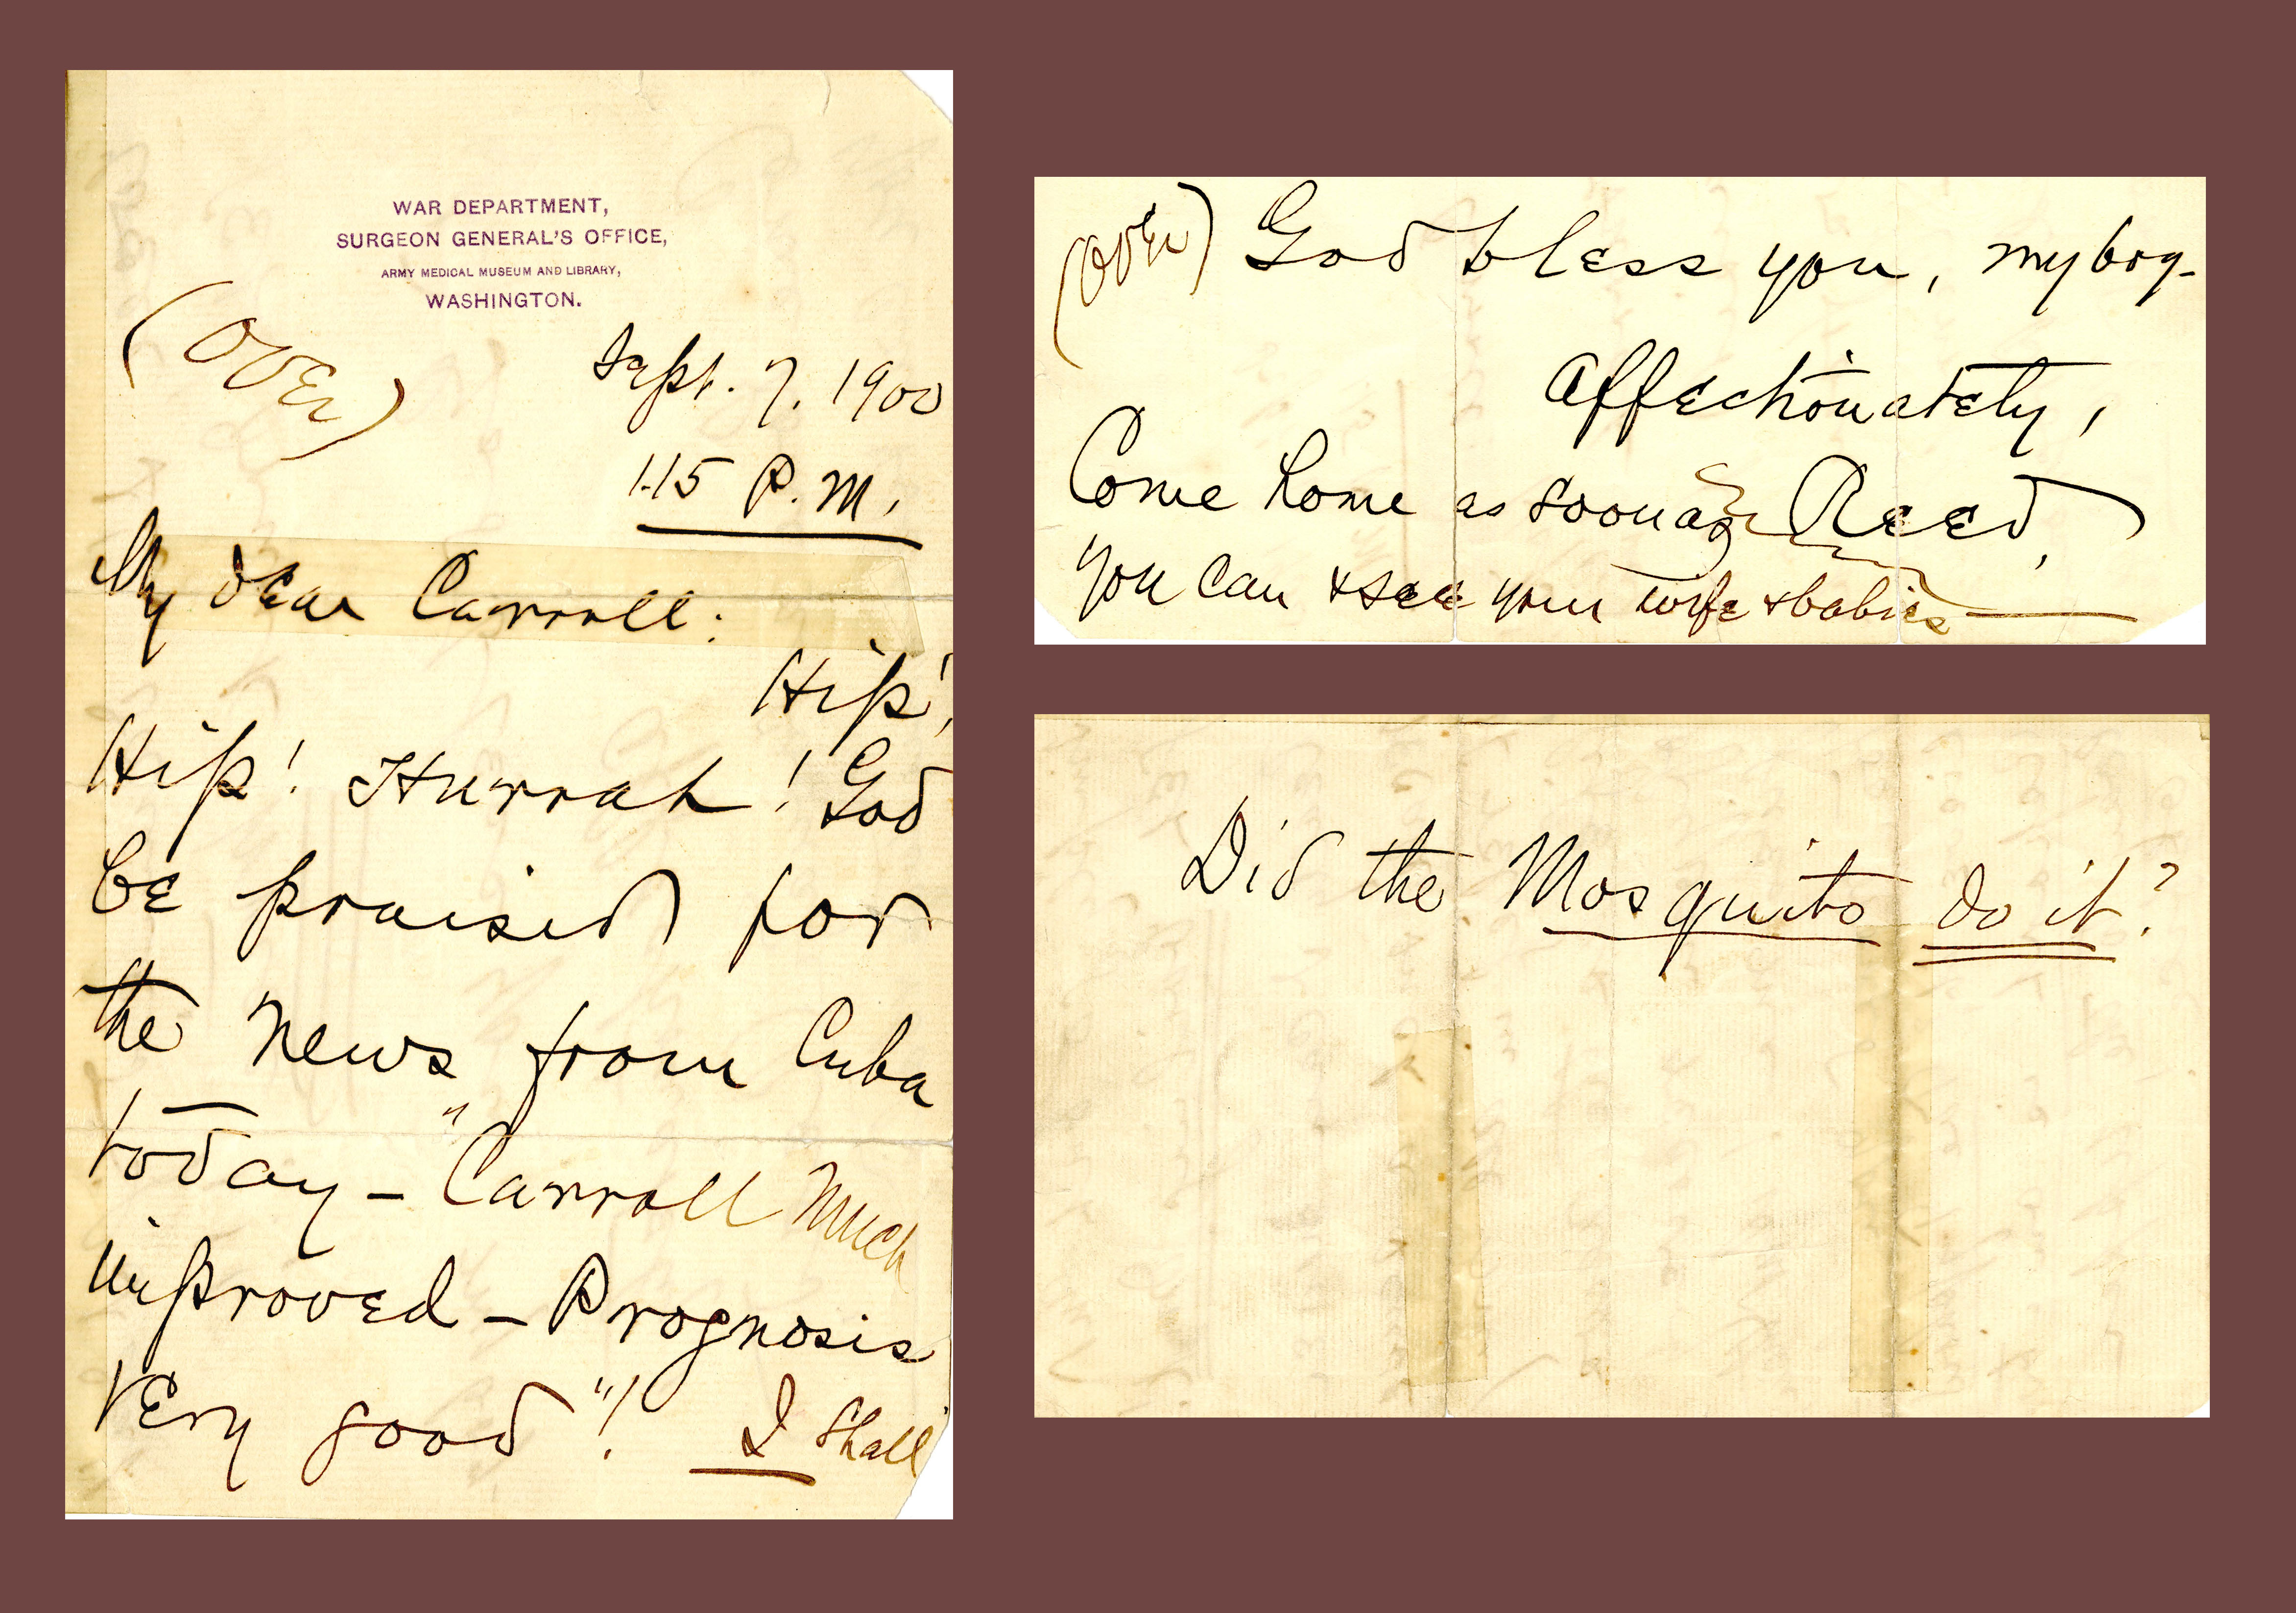 WAR DEPARTMENT,
SURGEON GENERAL'S OFFICE,
ARMY MEDICAL MUSEUM AND LIBRARY,
WASHINGTON.
(Over)
Sept. 7, 1900
1.15 P.M.
My dear Carroll:
Hip!
Hip! Hurrah! God
be praised for
the news from Cuba
today – "Carroll much
improved – Prognosis
very good"! I shall
(Over) God bless you, my boy –
Affectionately,
Come home as soon as Reed,
you can & see your wife & babies
Did the Mosquito do it?